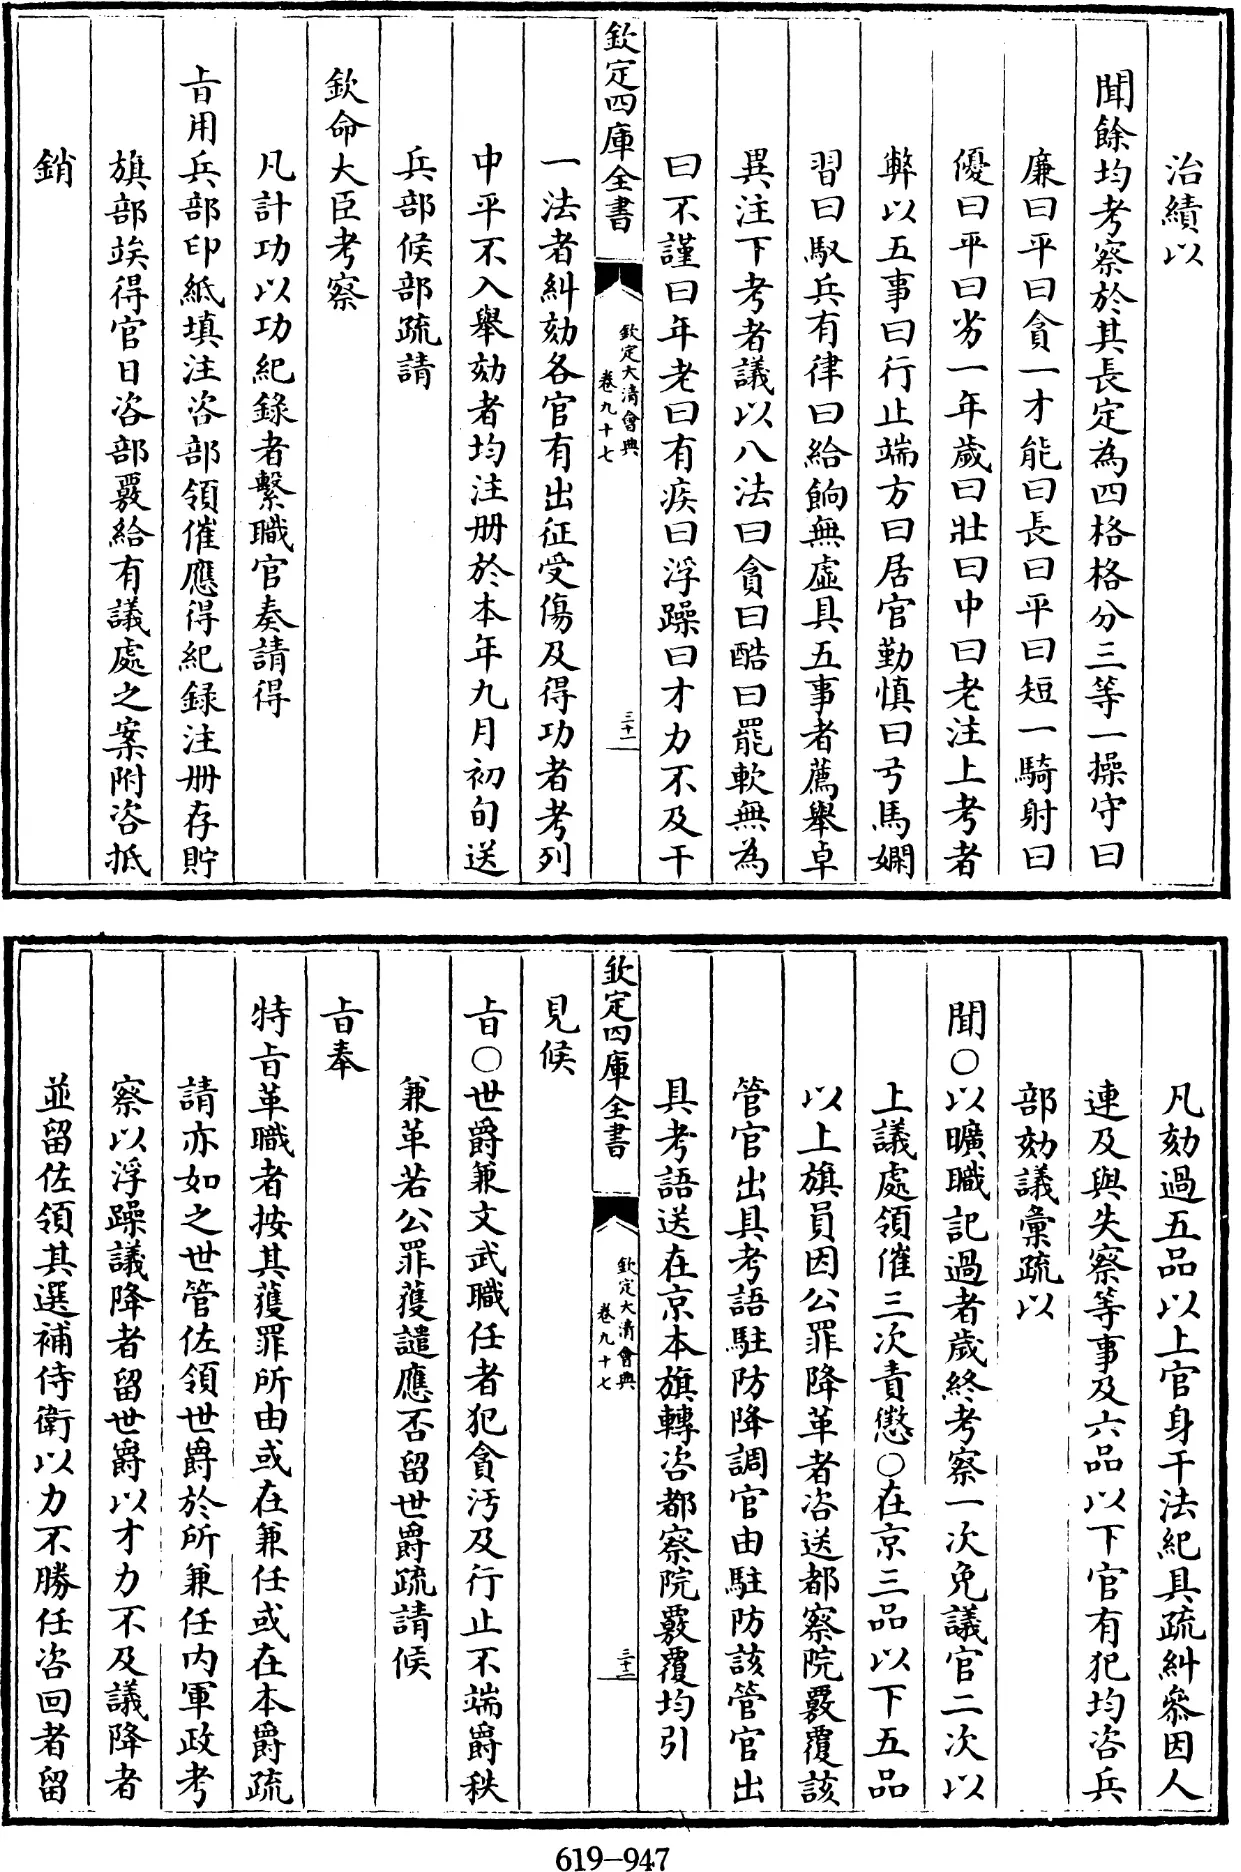 治績以
聞餘均考察於其長定為四格格分三等一操守曰
廉曰平曰貪一才能曰長曰平曰短一騎射曰
優曰平曰劣一年歲曰壯曰中曰老注上考者
弊以五事曰行止端方曰居官勤慎曰弓馬嫻
習曰馭兵有律曰給餉無虛具五事者薦舉卓
異注下考者議以八法曰貪曰酷曰罷軟無為
曰不謹曰年老曰有疾曰浮躁曰才力不及干
欽定四庫全書
欽定大清會典
卷九十七
三十一
一法者糾劾各官有出征受傷及得功者考列
中平不入舉劾者均注冊於本年九月初旬送
兵部候部疏請
欽命大臣考察
凡計功以功紀錄者繫職官奏請得
旨用兵部印紙填注咨部領催應得紀錄注冊存貯
旗部竢得官日咨部覈給有議處之案附咨抵
銷
凡劾過五品以上官身干法紀具疏糾叅因人
連及與失察等事及六品以下官有犯均咨兵
部劾議彙疏以
聞○以曠職記過者歲終考察一次免議官二次以
上議處領催三次責懲○在京三品以下五品
以上旗員因公罪降革者咨送都察院覈覆該
管官出具考語駐防降調官由駐防該管官出
具考語送在京本旗轉咨都察院覈覆均引
欽定四庫全書
欽定大清會典
卷九十七
三十二
見候
旨○世爵兼文武職任者犯貪汚及行止不端爵秩
兼革若公罪獲譴應否留世爵疏請候
旨奉
特旨革職者按其獲罪所由或在兼任或在本爵疏
請亦如之世管佐領世爵於所兼任內軍政考
察以浮躁議降者留世爵以才力不及議降者
並留佐領其選補侍衛以力不勝任咨回者留
619-947